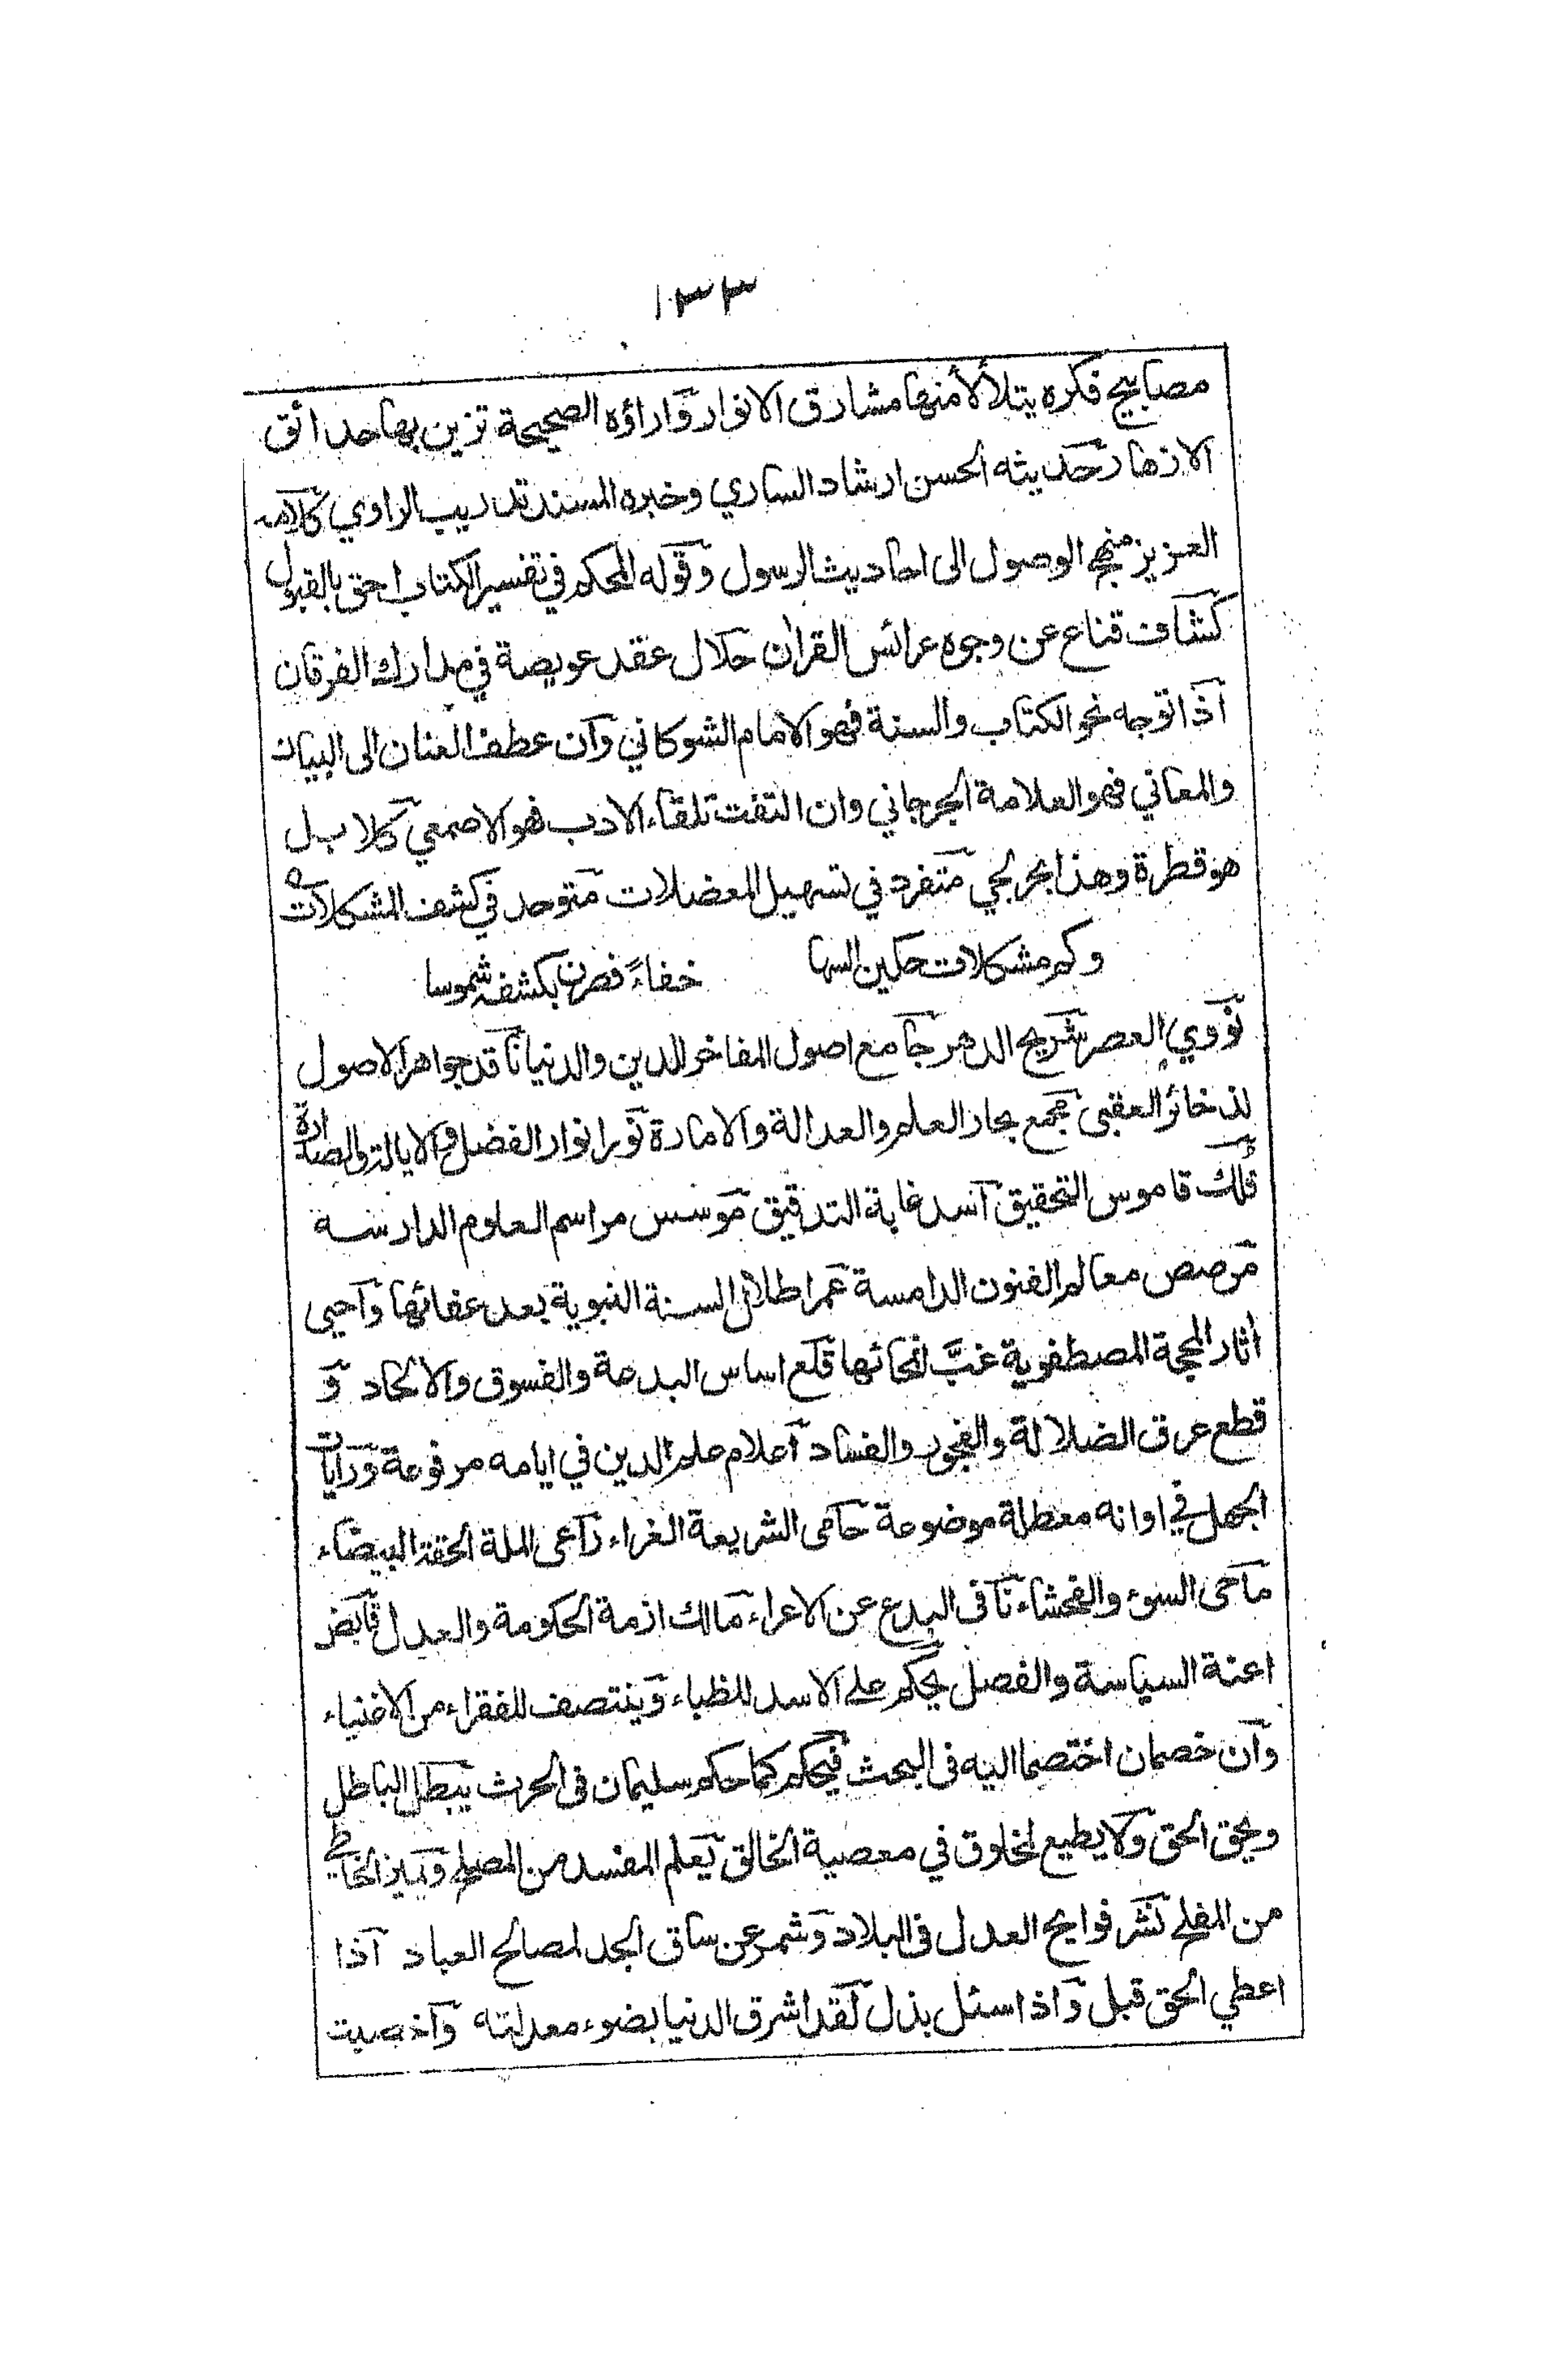 ١٣٣
مصابيح فكره يتلألأ منها مشارق الانوار واراؤه الصحيحة تزين بها حدائق
الازهار حديثه الحسن ارشاد الساري وخبره المسند تدريب الراوي كلامه
العزيز منهج الوصول الى احاديث الرسول وقوله المحكم في تفسير الكتاب احق بالقبول
كشاف قناع عن وجوه عرائس القران حلال عقد عويصة في مدارك الفرقان
اذا توجه نحو الكتاب والسنة فهو الامام الشوكاني وان عطف العنان الى البيان
والمعاني فهو العلامة الجرجاني وان التفت تلقاء الادب فهو الاصمعي كلا بل
هو قطرة وهذا بحر لجي متفرد في تسهيل المعضلات متوحد في كشف المشكلات ه
وكم مشكلات حكين السها خفاءً فصرن بكشفه شموسا
نووي العصر شريح الدهر جامع اصول المفاخر للدين والدنيا ناقد جواهر الاصول
لذخائر العقبى مجمع بحار العلم والعدالة والامارة نور انوار الفضل والايالة والصدارة
فلك قاموس التحقيق اسد غابة التدقيق موسس مراسم العلوم الدارسة
مرصص معالم الفنون الدامسة عمر اطلال السنة النبوية بعد عفائها واحيى
اثار المحجة المصطفوية غبَّ انمحائها قلع اساس البدعة والفسوق والالحاد و
قطع عرق الضلالة والفجور والفساد اعلام علم الدين في ايامه مرفوعة ورايات
الجهل في اوانه معطلة موضوعة حامى الشريعة الغراء راعى الملة الحقة البيضاء
ماحى السوء والفحشاء نافى البدع عن الاعراء مالك ازمة الحكومة والعدل قابض
اعنة السياسة والفصل يحكم على الاسد للظباء وينتصف للفقراء من الاغنياء
وان خصمان اختصما اليه فى البحث فيحكم كما حكم سليمان فى الحرث يبطل الباطل
ويحق الحق ولا يطيع لمخلوق في معصية الخالق يعلم المفسد من المصلح ويميز الخاطي
من المفلح نشر فوايح العدل فى البلاد وشمر عن ساق الجد لمصالح العباد اذا
اعطي الحق قبل واذا سئل بذل لقد اشرق الدنيا بضوء معدلته